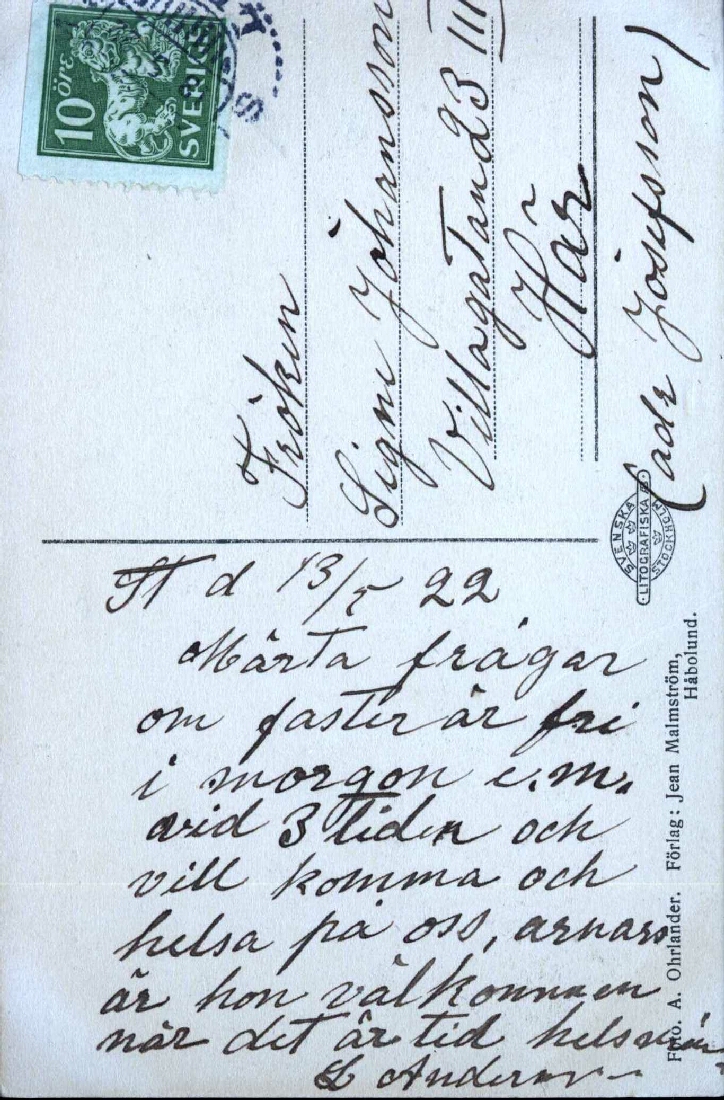 10 öre
SVERIGE
Fröken
Signe Johansson
Villagatan 23 III
Här
(adr Josefsson)
SVENSKA
LITOGRAFISKA
STOCKHOLM
St d 13/5 22
Märta frågar
om faster är fri
i morgon e.m.
vid 3 tiden och
vill komma och
helsa på oss, annars
är hon välkommen
när det är tid
L Anderson
Foto. A. Ohrlander. Förlag: Jean Malmström,
Håbolund.